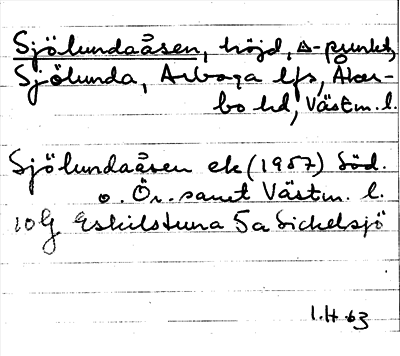 Sjölundaåsen, höjd, △-punkt,
Sjölunda, Arboga lfs, Åker-
bo hd, Västm. l.
Sjölundaåsen ek (1957) Söd.
o. Ör. samt Västm. l.
10G Eskilstuna 5a Sickelsjö
1.H 63